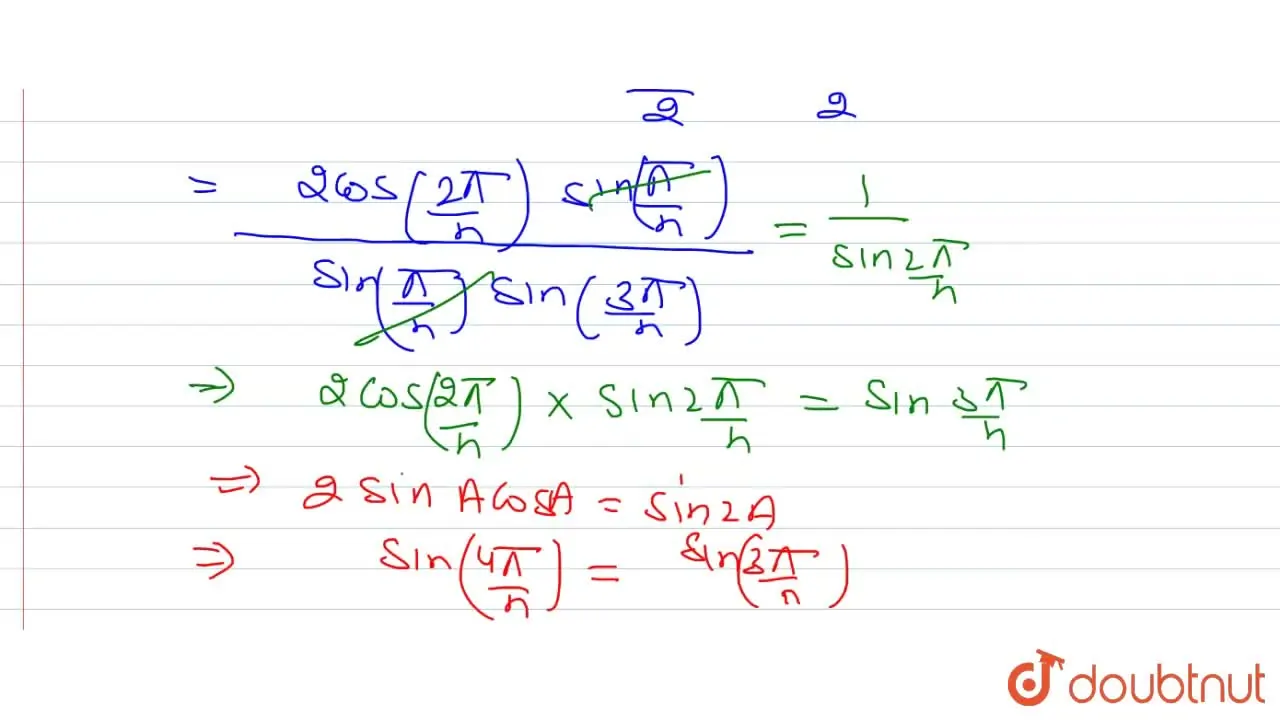 2 2
= 2cos(2π/n) sin(π/n) / sin(π/n) sin(3π/n) = 1 / sin 2π/n
⇒ 2cos(2π/n) × sin 2π/n = sin 3π/n
⇒ 2 sin A cos A = sin 2A
⇒ sin(4π/n) = sin(3π/n)
doubtnut